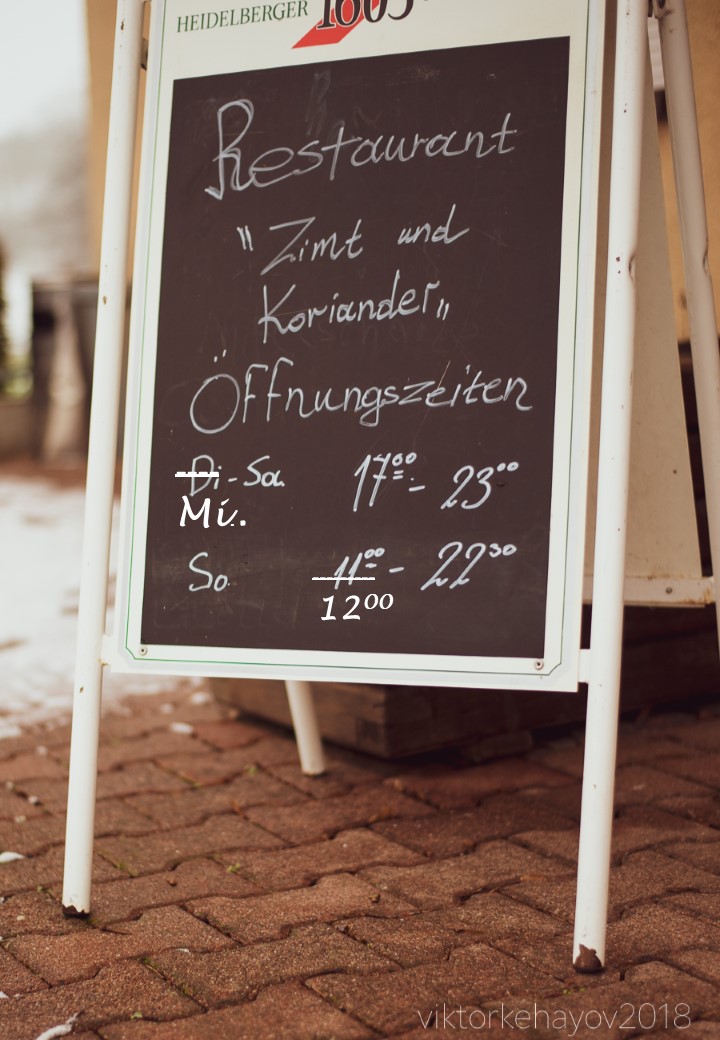 HEIDELBERGER 1603
Restaurant
"Zimt und
Koriander"
Öffnungszeiten
Di-Sa. 17⁰⁰ - 23⁰⁰
Mi.
So. 11⁰⁰ - 22³⁰
12⁰⁰
viktorkehayov2018